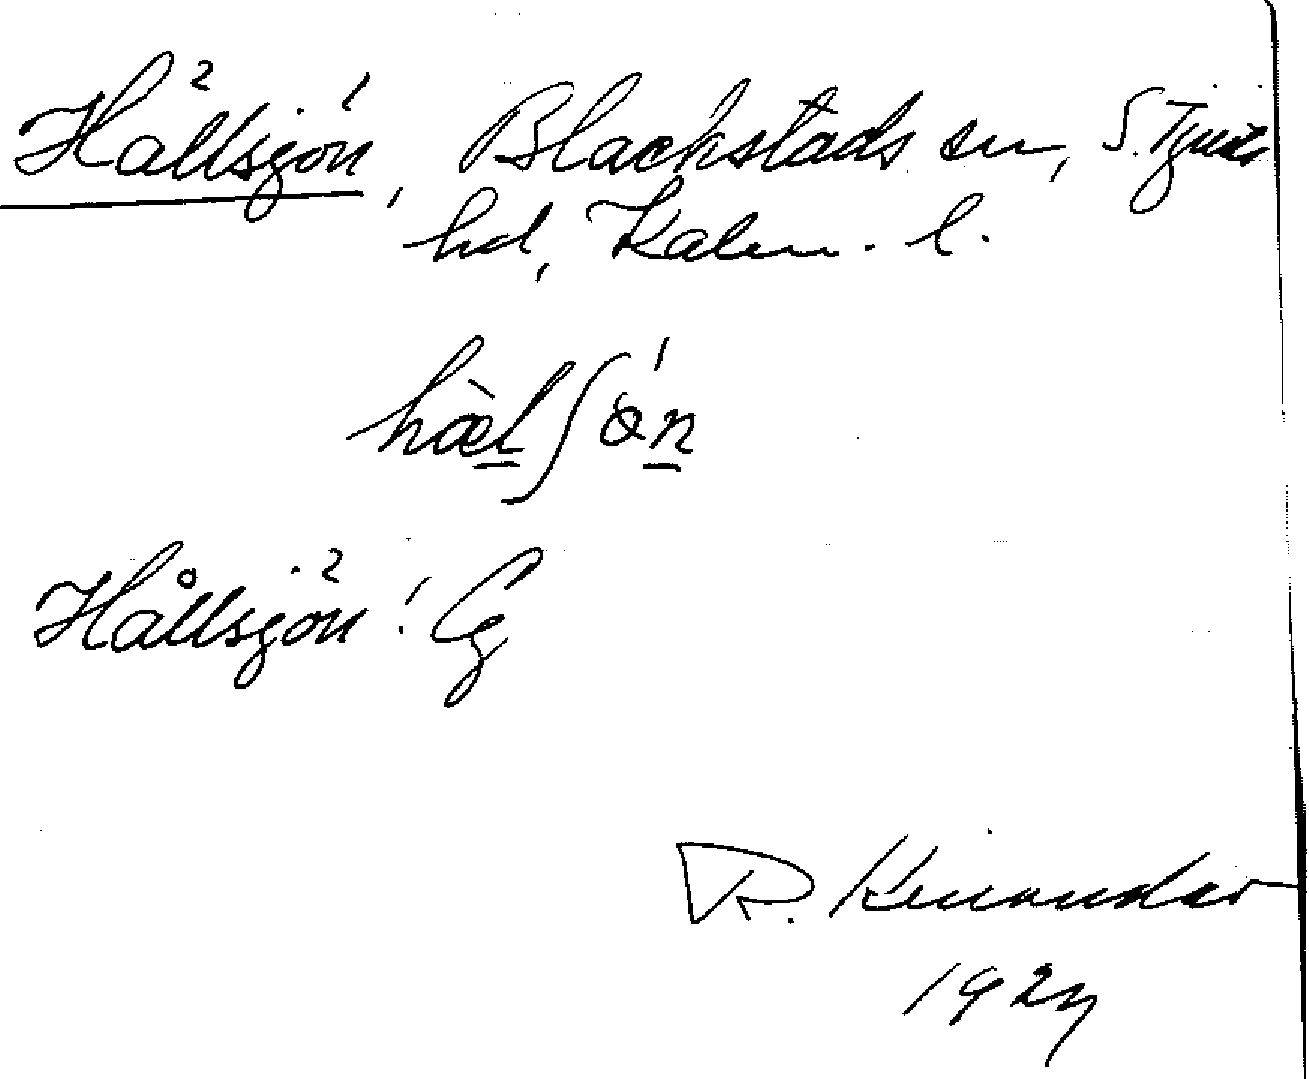 Hållsjön, Blackstads sn, S. Tjusts
hd, Kalm. l.
hàlʃön
Hållsjön! Cg
R. Kinander
1927